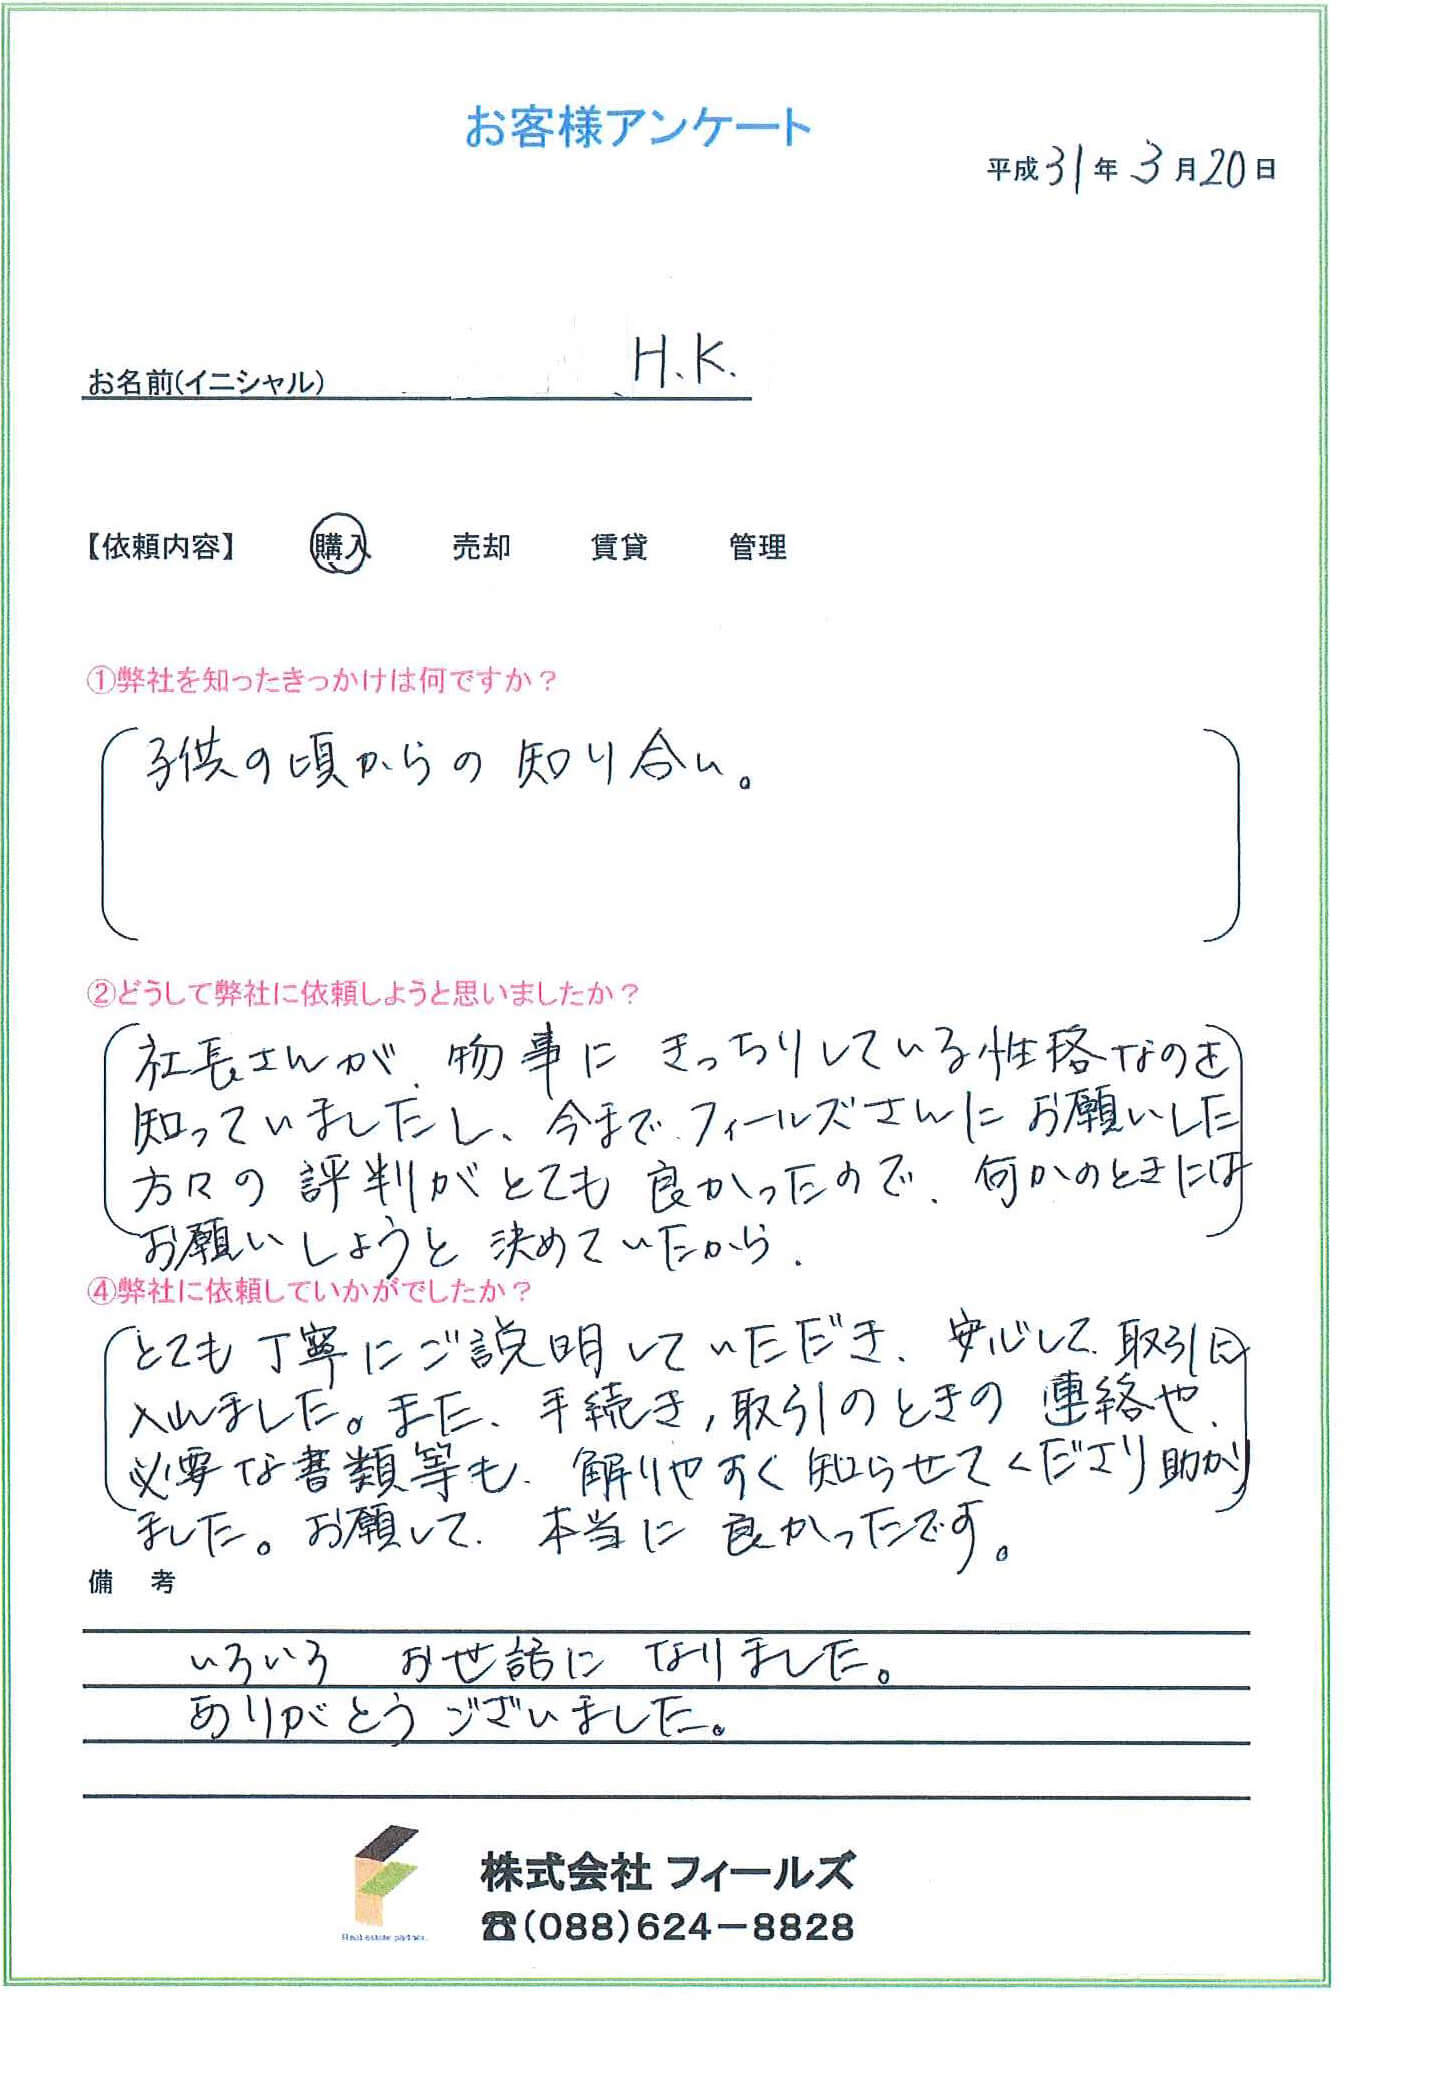 お客様アンケート
平成31年3月20日
お名前(イニシャル) H.K.
【依頼内容】 購入 売却 賃貸 管理
①弊社を知ったきっかけは何ですか?
子供の頃からの知り合い。
②どうして弊社に依頼しようと思いましたか?
社長さんが、物事にきっちりしている性格なのを
知っていましたし、今まで、フィールズさんにお願いした
方々の評判がとても良かったので、何かのときには
お願いしようと決めていたから、
④弊社に依頼していかがでしたか?
とても丁寧にご説明していただき、安心して、取引に
入れました。また、手続き,取引のときの連絡や、
必要な書類等も、解りやすく知らせてくださり助かり
ました。お願して、本当に良かったです。
備 考
いろいろ お世話に なりました。
ありがとうございました。
Real estate partner.
株式会社 フィールズ
☎(088)624-8828